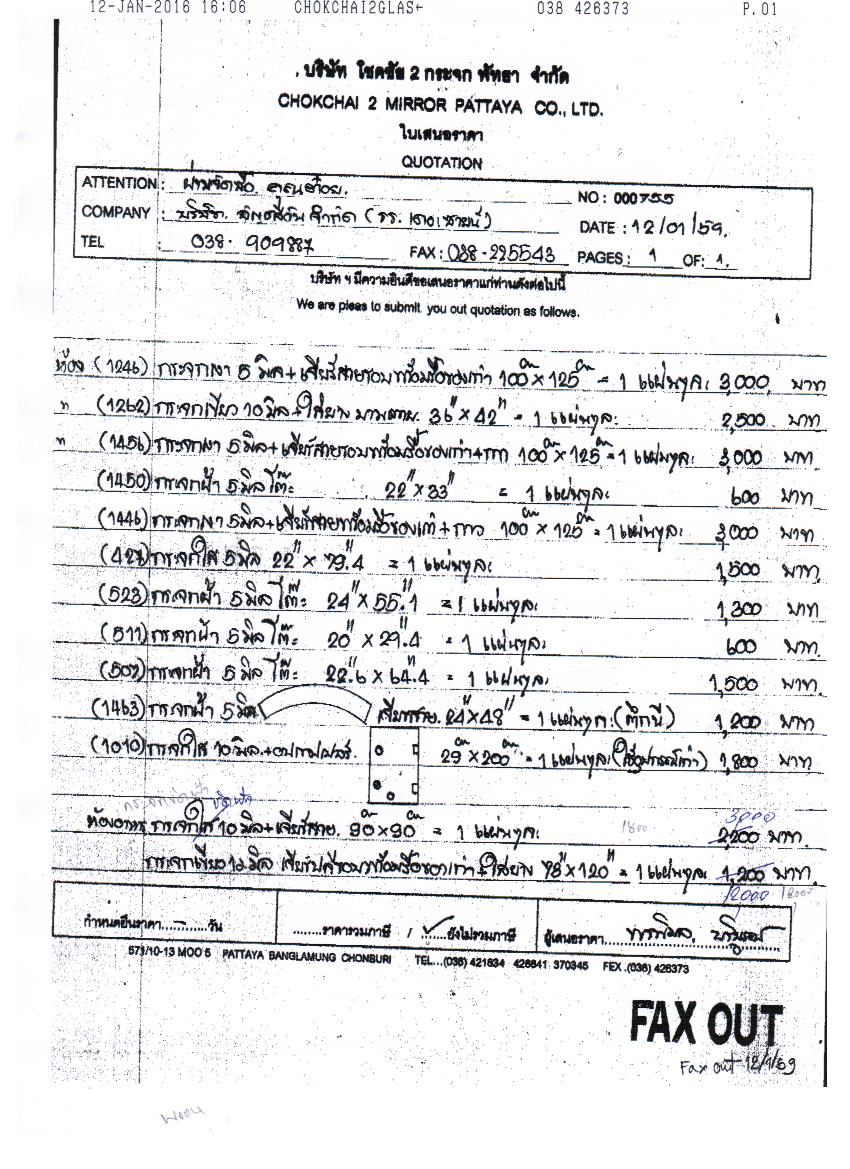 12-JAN-2016 16:06 CHOKCHAI2GLAS← 038 426373 P.01
บริษัท โชคชัย 2 กระจก พัทยา จำกัด
CHOKCHAI 2 MIRROR PATTAYA CO., LTD.
ใบเสนอราคา
QUOTATION
ATTENTION : ฝ่ายจัดซื้อ คุณต้อย. NO : 000755
COMPANY : บริษัท จำกัด DATE : 12/01/59.
TEL : 038-909887 FAX : 038-225543 PAGES : 1 OF: 1.
บริษัท ฯ มีความยินดีขอเสนอราคาแก่ท่านดังต่อไปนี้
We are pleas to submit you out quotation as follows.
ห้อง (1246) กระจกเงา 5 มิล+เจียร์สายรอบพร้อมรื้อของเก่า 100ซม × 125ซม = 1 แผ่นๆละ 3,000 บาท
" (1262) กระจกเขียว 10 มิล+ใส่ยาง 36" × 42" = 1 แผ่นๆละ 2,500 บาท
" (1456) กระจกเงา 5 มิล+เจียร์สายรอบพร้อมรื้อของเก่า+กาว 100ซม × 125ซม = 1 แผ่นๆละ 3,000 บาท.
(1450) กระจกฝ้า 5 มิล โต๊ะ 22" × 33" = 1 แผ่นๆละ 600 บาท
(1446) กระจกเงา 5 มิล+เจียร์สายพร้อมรื้อของเก่า+กาว 100ซม × 125ซม = 1 แผ่นๆละ 3,000 บาท
(427) กระจกใส 5 มิล 22" × 79".4 = 1 แผ่นๆละ 1,500 บาท.
(523) กระจกฝ้า 5 มิล โต๊ะ 24" × 55".1 = 1 แผ่นๆละ 1,300 บาท
(511) กระจกฝ้า 5 มิล โต๊ะ 20" × 29".4 = 1 แผ่นๆละ 600 บาท.
(507) กระจกฝ้า 5 มิล โต๊ะ 22".6 × 64".4 = 1 แผ่นๆละ 1,500 บาท.
(1463) กระจกฝ้า 5 มิล เจียรสาย. 24" × 48" = 1 แผ่นๆละ 1,200 บาท
(1010) กระจกใส 10 มิล 29ซม × 200ซม = 1 แผ่นๆละ (ใช้อุปกรณ์เก่า) 1,800 บาท
3000
ห้องอาหาร กระจกใส 10 มิล+เจียร์สาย. 90ซม × 90ซม = 1 แผ่นๆละ 1800 2,200 บาท.
กระจกเขียว 10 มิล พร้อมรื้อของเก่า+ใส่ยาง 78" × 120" = 1 แผ่นๆละ 1,200 บาท.
12000
กำหนดยืนราคา.....-.....วัน ........ราคารวมภาษี / ✓....ยังไม่รวมภาษี ผู้เสนอราคา
571/10-13 MOO 5 PATTAYA BANGLAMUNG CHONBURI TEL...(038) 421834 426841 370345 FEX .(038) 426373
FAX OUT
Fax out 12/1/59